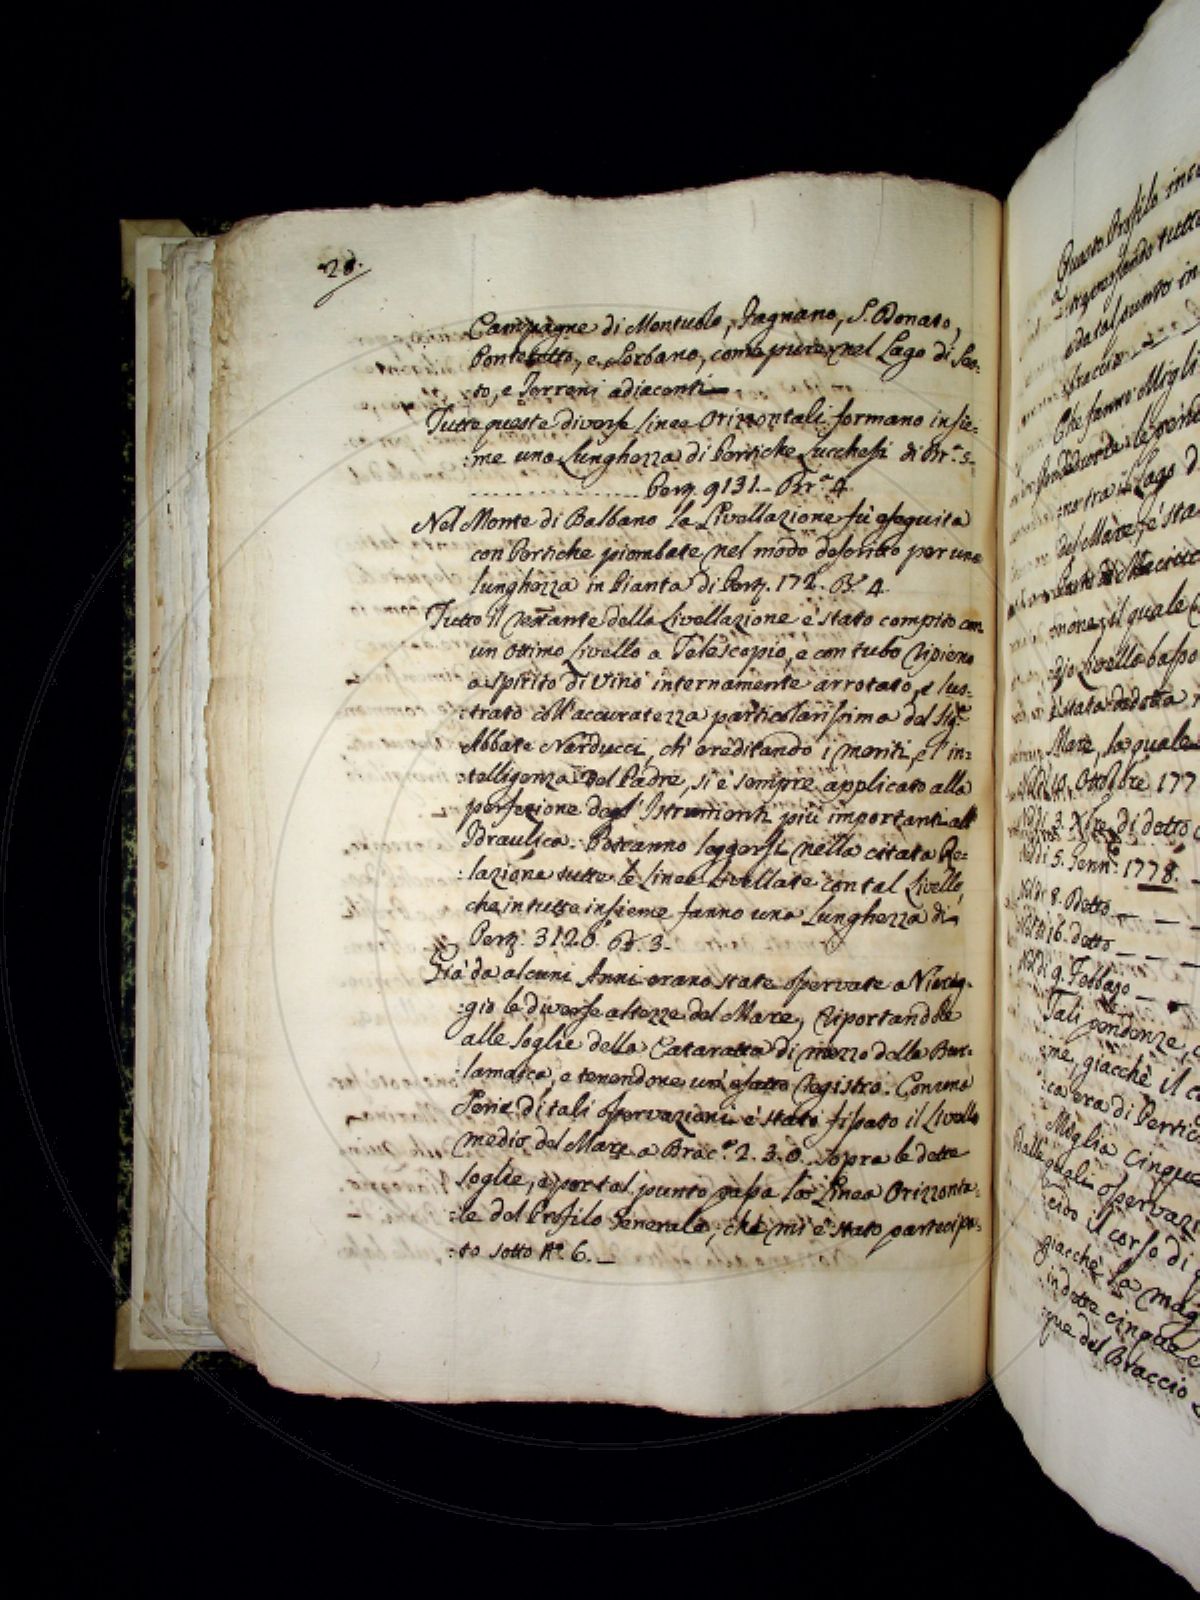 20.
Campagne di Montuolo, Fagnano, S. Donato,
Pontetetto, e Sorbano, come pure nel Lago di Ses:
:to, e Terreni adiacenti
Tutte queste diverse linee Orizzontali formano insie:
:me una Lunghezza di Pertiche Lucchesi di Br.ᵃ 5-
Pert. 9131.- Br.ᵃ 4
Nel Monte di Balbano la Livellazione fù eseguita
con Pertiche piombate nel modo descritto per una
lunghezza in Pianta di Pert. 172. B. 4
Tutto il restante della Livellazione è stato compito con
un ottimo Livello a Telescopio, e con tubo ripieno
a spirito di Vino internamente arrotato, e lus:
:trato coll'accuratezza particolarissima del Sig.ʳᵉ
Abbate Narducci, ch'ereditando i meriti, e l'in:
:telligenza del Padre, si è sempre applicato alla
perfezione degl'Istrumenti più importanti all'
Idraulica. Potranno leggersi nella citata Re:
:lazione tutte le linee Livellate con tal Livello,
che in tutte insieme fanno una Lunghezza di
Pert. 3126. B. 3.
Già da alcuni Anni erano state osservate a Viareg:
:gio le diverse altezze del Mare, riportandole
alle soglie della Cataratta di mezzo della Bur:
:lamacca, e tenendone un'esatto registro. Con una
Serie di tali osservazioni è stato fissato il Livello
medio del Mare a Brac.ᵃ 2. 3. 0. sopra le dette
soglie, e per tal punto passa la Linea Orizzonta:
:le del Profilo Generale, che mi è stato partecipa:
:to sotto Nº 6.
Questo Profilo
Che fanno Migli
no tra il Lago
del Mare, è sta
il quale
Livello basso
è stata dedotta
Mare, la quale
Nel dì Ottobre 177
Nel dì 3. Xbre di detto
Nel dì 5. Genn. 1778.
Nel dì 8. Detto
Nel dì 16. detto
Nel dì 9. Febbraio
Tali pendenze,
:me, giacchè il
:ca era di Pertic
Miglia cinque
Dalle quali osservazi
il corso di
giacchè la mag
in dette cinque
:que del Braccio